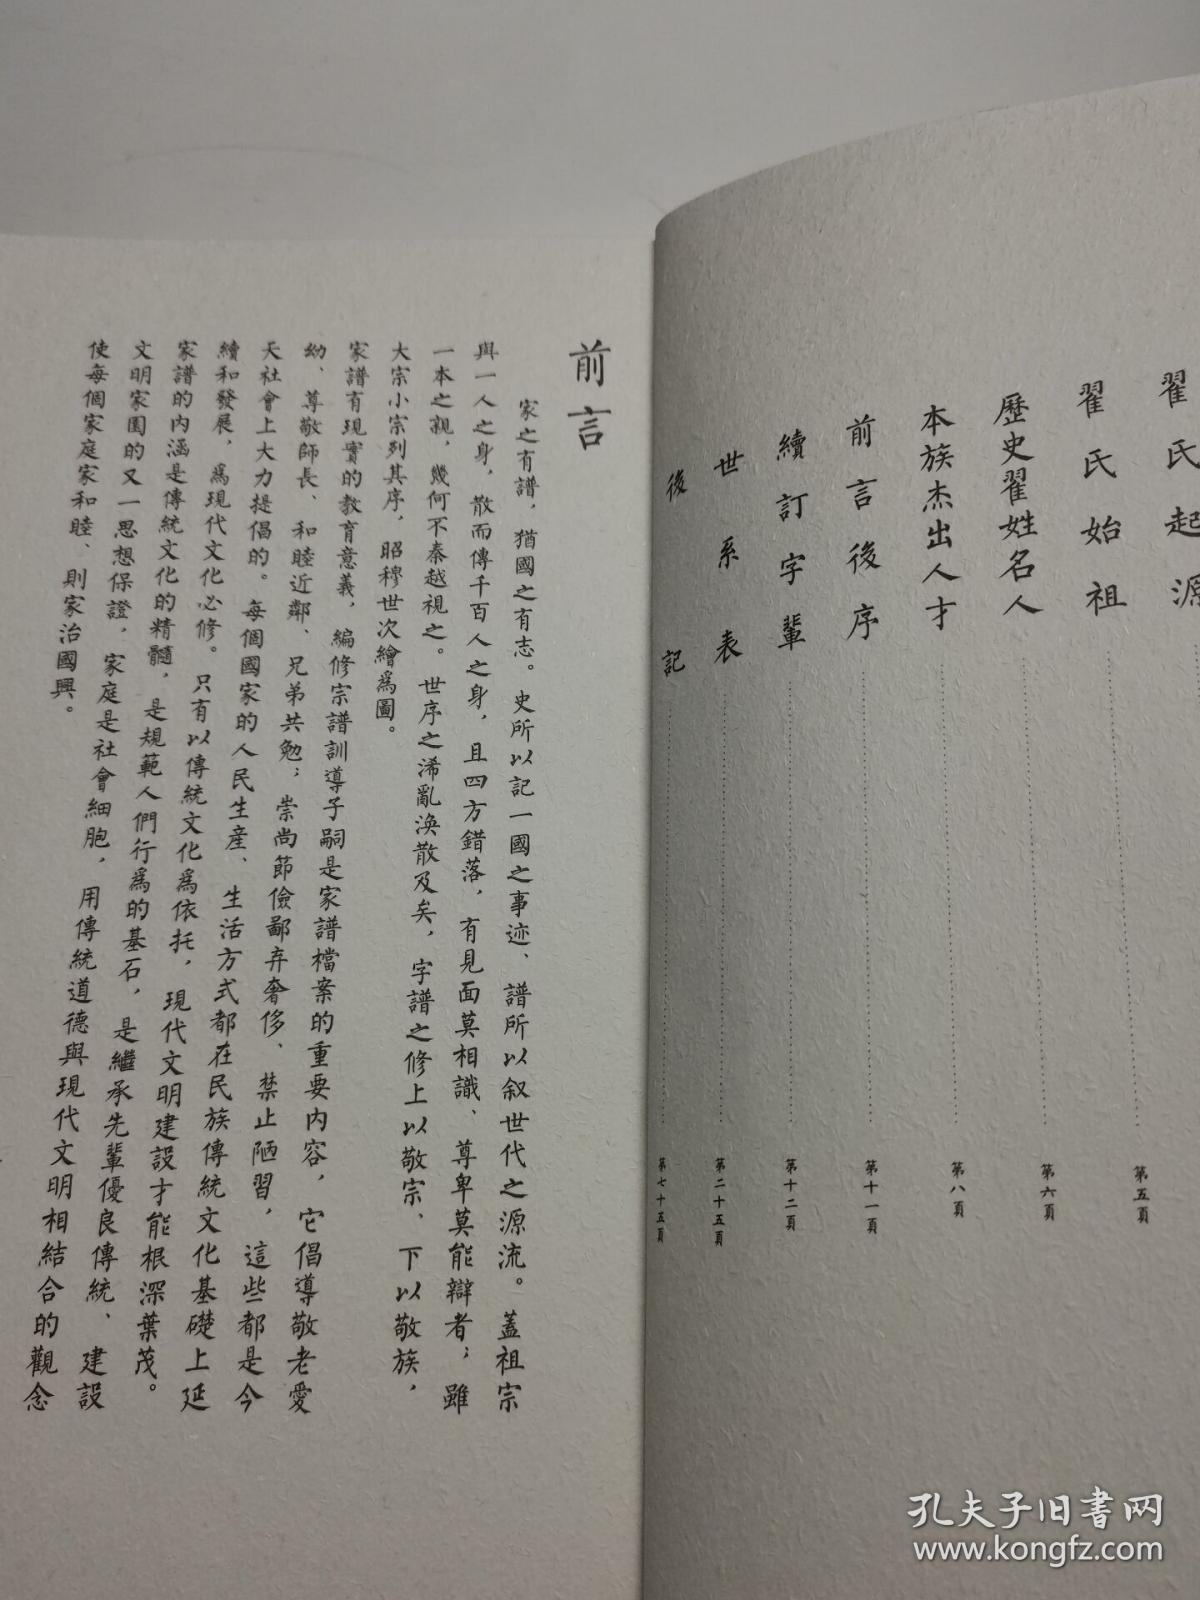 翟氏起源
翟氏始祖 第五頁
歷史翟姓名人 第六頁
本族杰出人才 第八頁
前言後序 第十一頁
續訂字輩 第十二頁
世系表 第二十五頁
後記 第七十五頁
前言
家之有譜，猶國之有志。史所以記一國之事迹、譜所以叙世代之源流。蓋祖宗
與一人之身，散而傳千百人之身，且四方錯落，有見面莫相識、尊卑莫能辯者；雖
一本之親，幾何不秦越視之。世序之浠亂渙散及矣，字譜之修上以敬宗、下以敬族，
大宗小宗列其序，昭穆世次繪爲圖。
家譜有現實的教育意義，編修宗譜訓導子嗣是家譜檔案的重要内容，它倡導敬老愛
幼、尊敬師長、和睦近鄰、兄弟共勉；崇尚節儉鄙弃奢侈、禁止陋習，這些都是今
天社會上大力提倡的。每個國家的人民生産、生活方式都在民族傳統文化基礎上延
續和發展，爲現代文化必修。只有以傳統文化爲依托，現代文明建設才能根深葉茂。
家譜的内涵是傳統文化的精髓，是規範人們行爲的基石，是繼承先輩優良傳統、建設
文明家園的又一思想保證，家庭是社會細胞，用傳統道德與現代文明相結合的觀念
使每個家庭家和睦、則家治國興。
孔夫子旧書网
www.kongfz.com